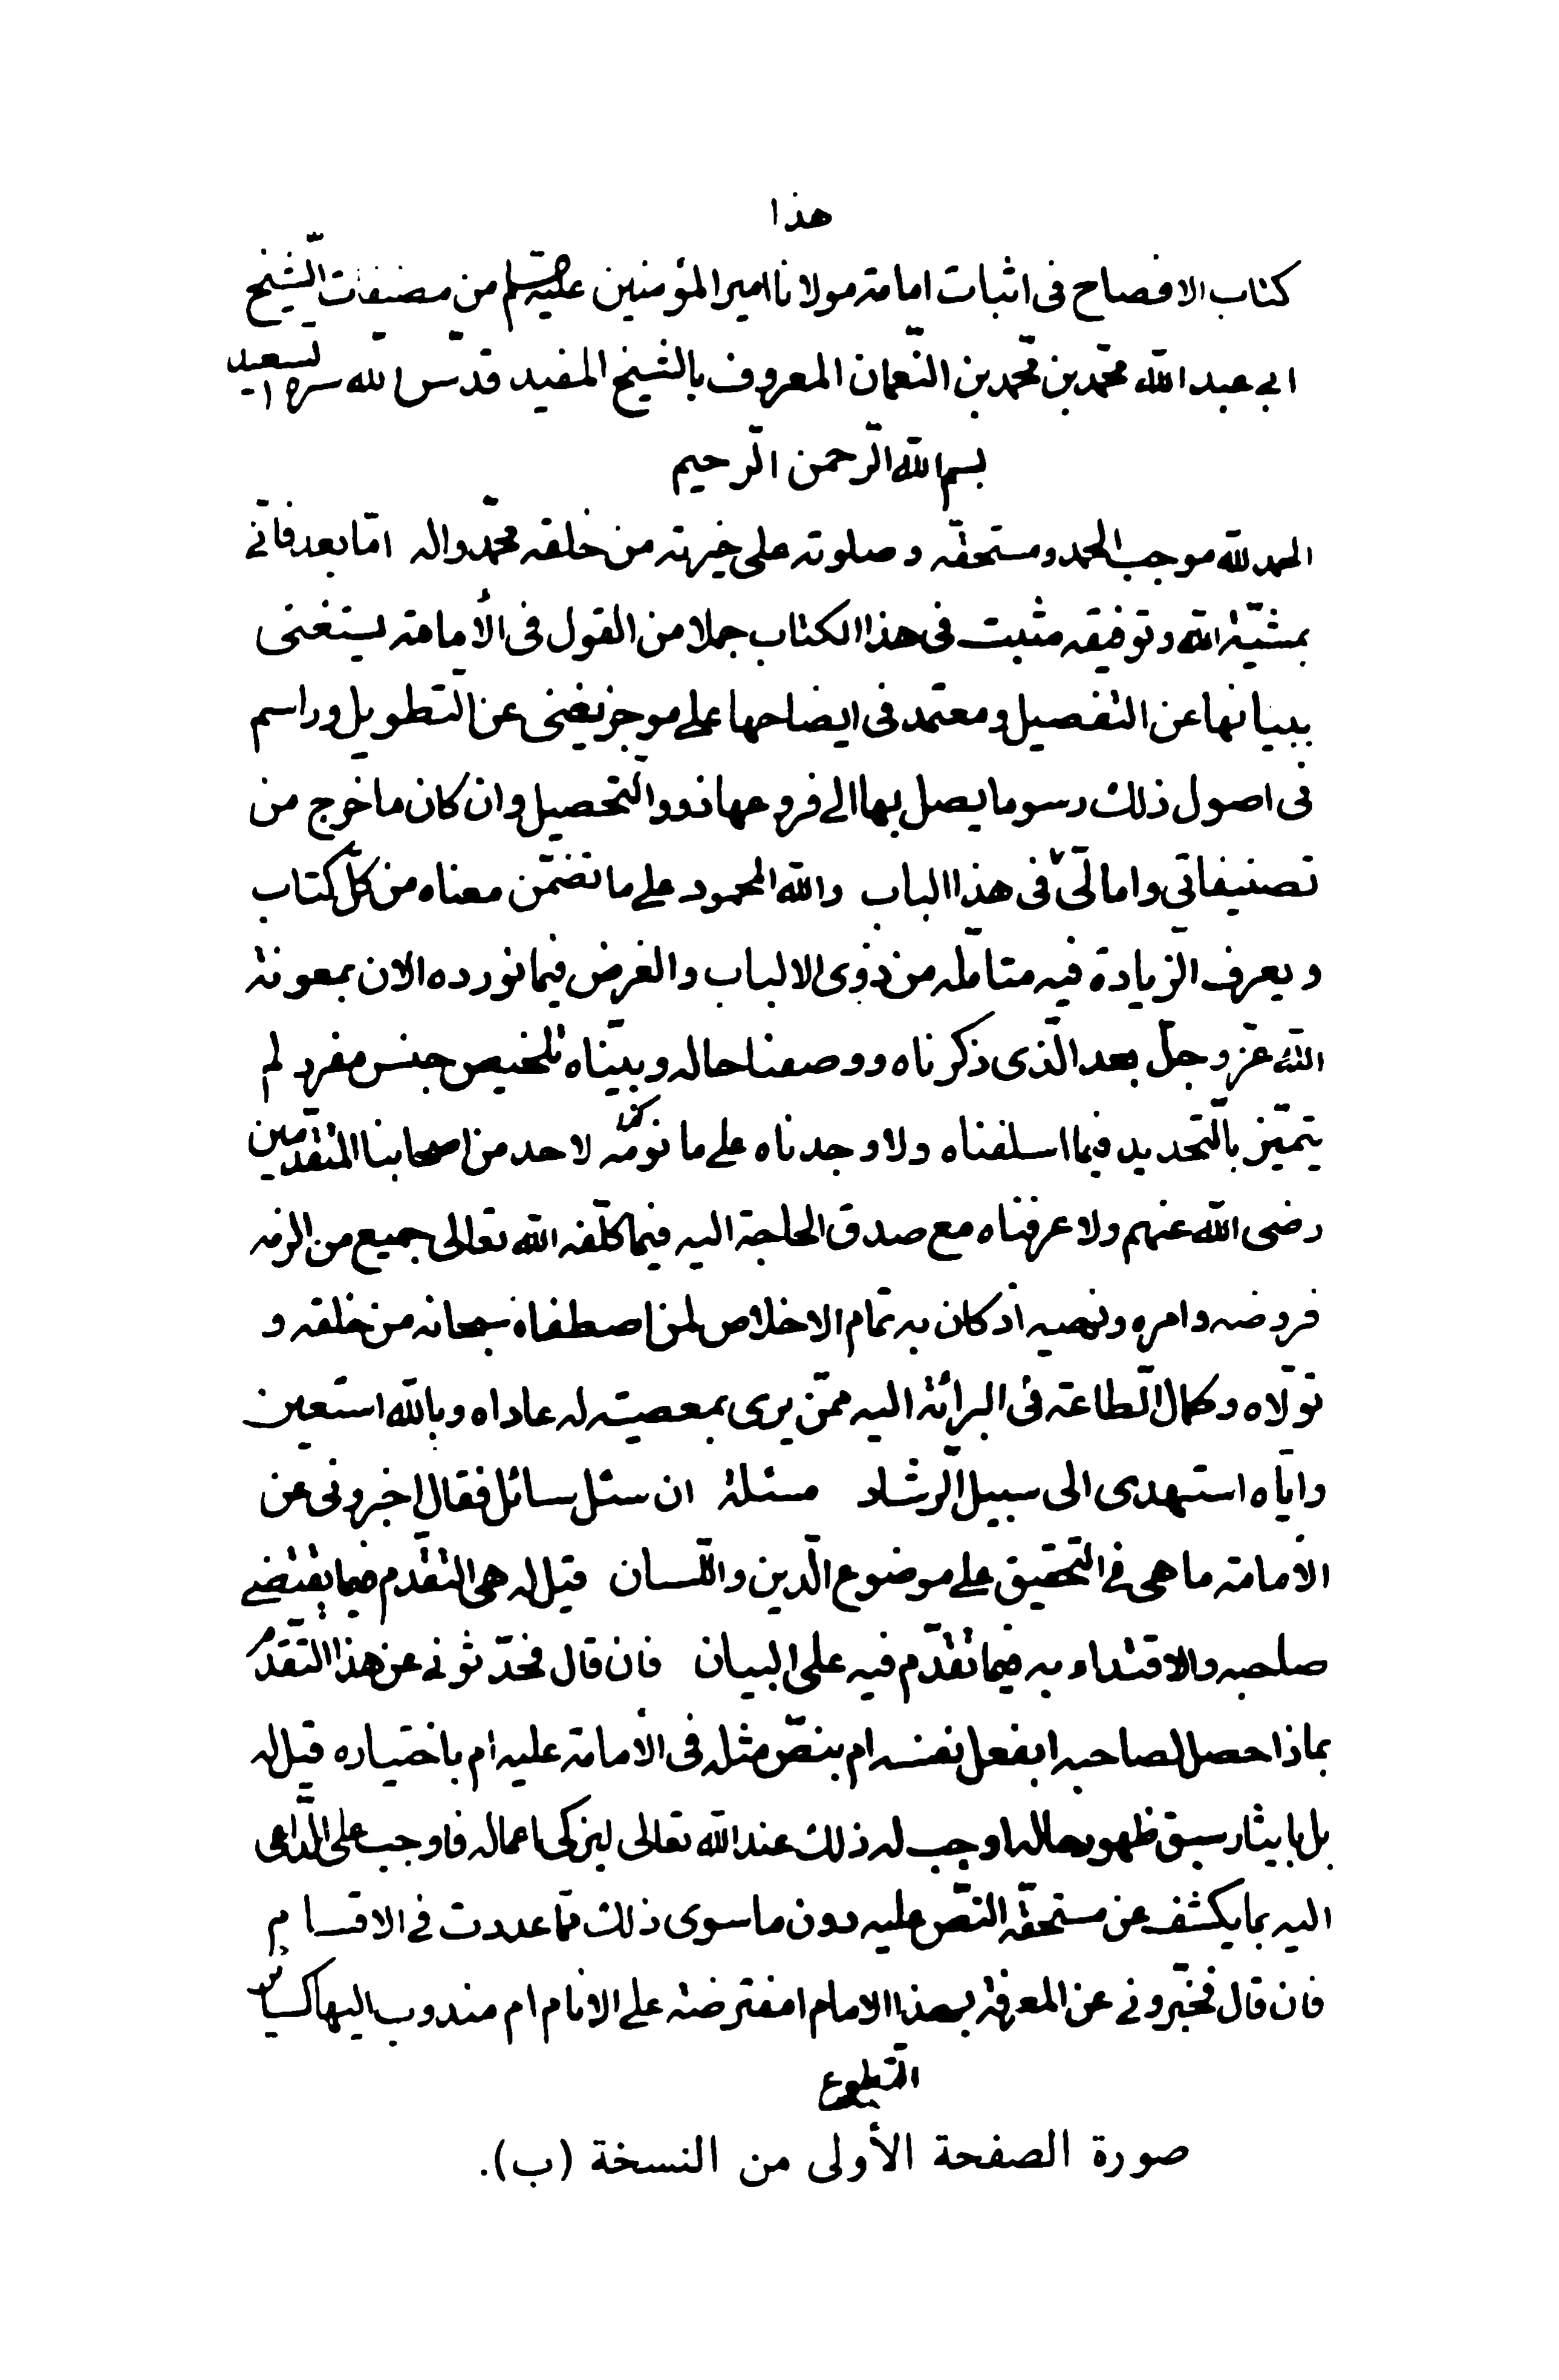 هذا
كتاب الافصاح فى اثبات امامة مولانا امير المؤمنين عليه من مصنفات الشيخ
ابى عبد الله محمد بن محمد بن النعمان المعروف بالشيخ المفيد قدس الله سره السعيد
بسم الله الرحمن الرحيم
الحمد لله موجب الحمد ومستحقه وصلوته على خيرته من خلقه محمد واله امّا بعد فانّى
بمشيّة الله وتوفيقه مثبت فى هذا الكتاب جملا من القول فى الأمامة يستغنى
ببيانها عن التفصيل ومعتمد فى ايضاحها على موجز يغنى عن التطويل وراسم
فى اصول ذلك رسوما يصل بها الى فروعها ذوو التحصيل وان كان ما خرج من
تصنيفاتى وامالىّ فى هذا الباب والله المحمود على ما تضمّن معناه من كلّ كتاب
ويعرف الزيادة فيه متامله من ذوى الالباب والغرض فيما نورده الان بمعونة
الله عزّ وجلّ بعد الّذى ذكرناه ووصفنا حاله وبيّناه تلخيص جنس مفرد لم
يتميّز بالتّحديد فيما اسلفناه ولا وجدناه على ما نومّه لاحد من اصحابنا المتقدّمين
رضى الله عنهم ولا عرفناه مع صدق الحاجة اليه فيما كلّفه الله تعالى جميع من الزمه
فروضه وامره ونهيه اذ كان به تمام الاخلاص لمن اصطفاه سبحانه من خلقه و
تولّاه وكمال الطاعة فى البرائة اليه ممّن يرى بمعصيته له عاداه وبالله استعين
وايّاه استهدى الى سبيل الرّشاد مسئلة ان سئل سائل فقال اخبرونى عن
الأمامة ما هى فى التحقيق على موضوع الدّين واللّسان قيل له هى التقدّم فيما يقتضى
صاحبه والاقتداء به فيما تقدّم فيه على البيان فان قال فحدّثونى عن هذا التقدّم
بماذا حصل لصاحبه ابفعل نفسه ام بنصّ مثله فى الأمامة عليه ام باختياره قيل له
بل بايثار سبق ظهور حاله اوجب له ذلك عند الله تعالى ليزكى اعماله فاوجب على الدّاعى
اليه بما يكشف عن مستحقّه النصّ عليه دون ما سوى ذلك ممّا عددت فى الاقسام
فان قال فخبّرونى عن المعرفة بهذا الامام امفترضة على الانام ام مندوب اليها كسائر
التطوع
صورة الصفحة الأولى من النسخة (ب).